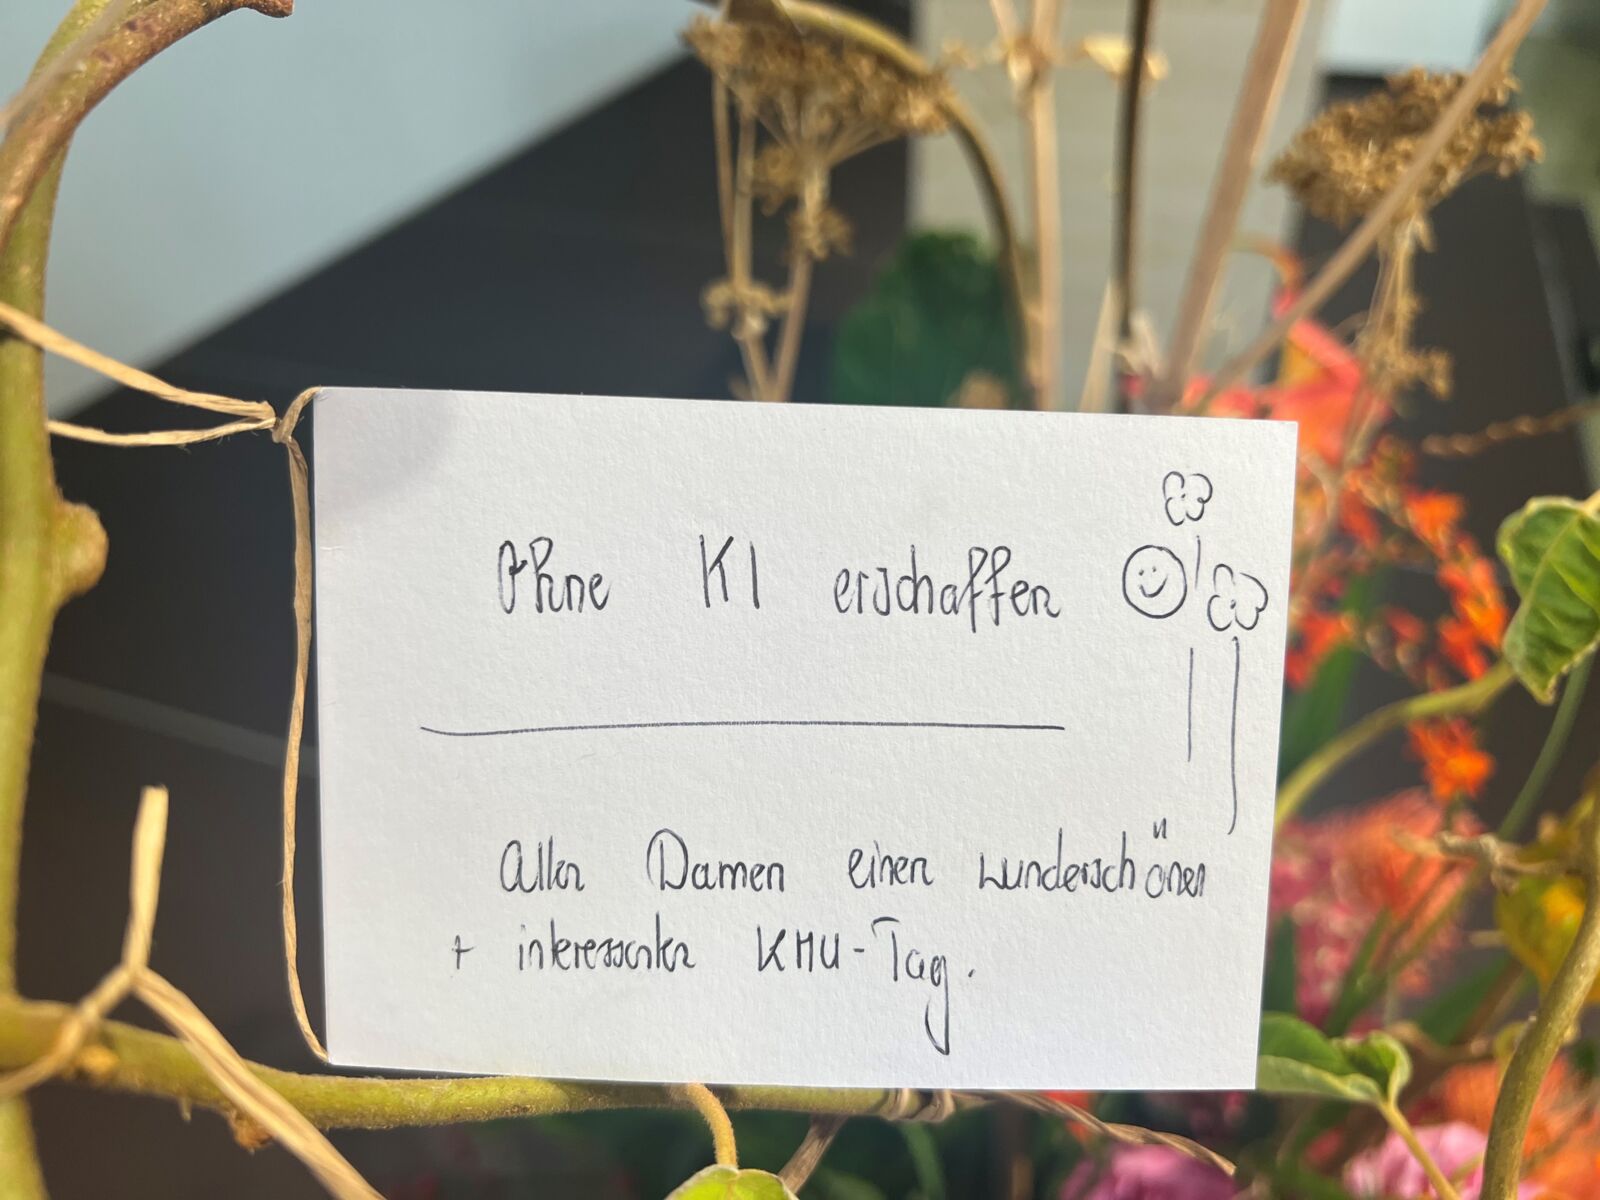 Ohne KI erschaffen
Allen Damen einen wunderschönen
+ interessanten KMU-Tag.